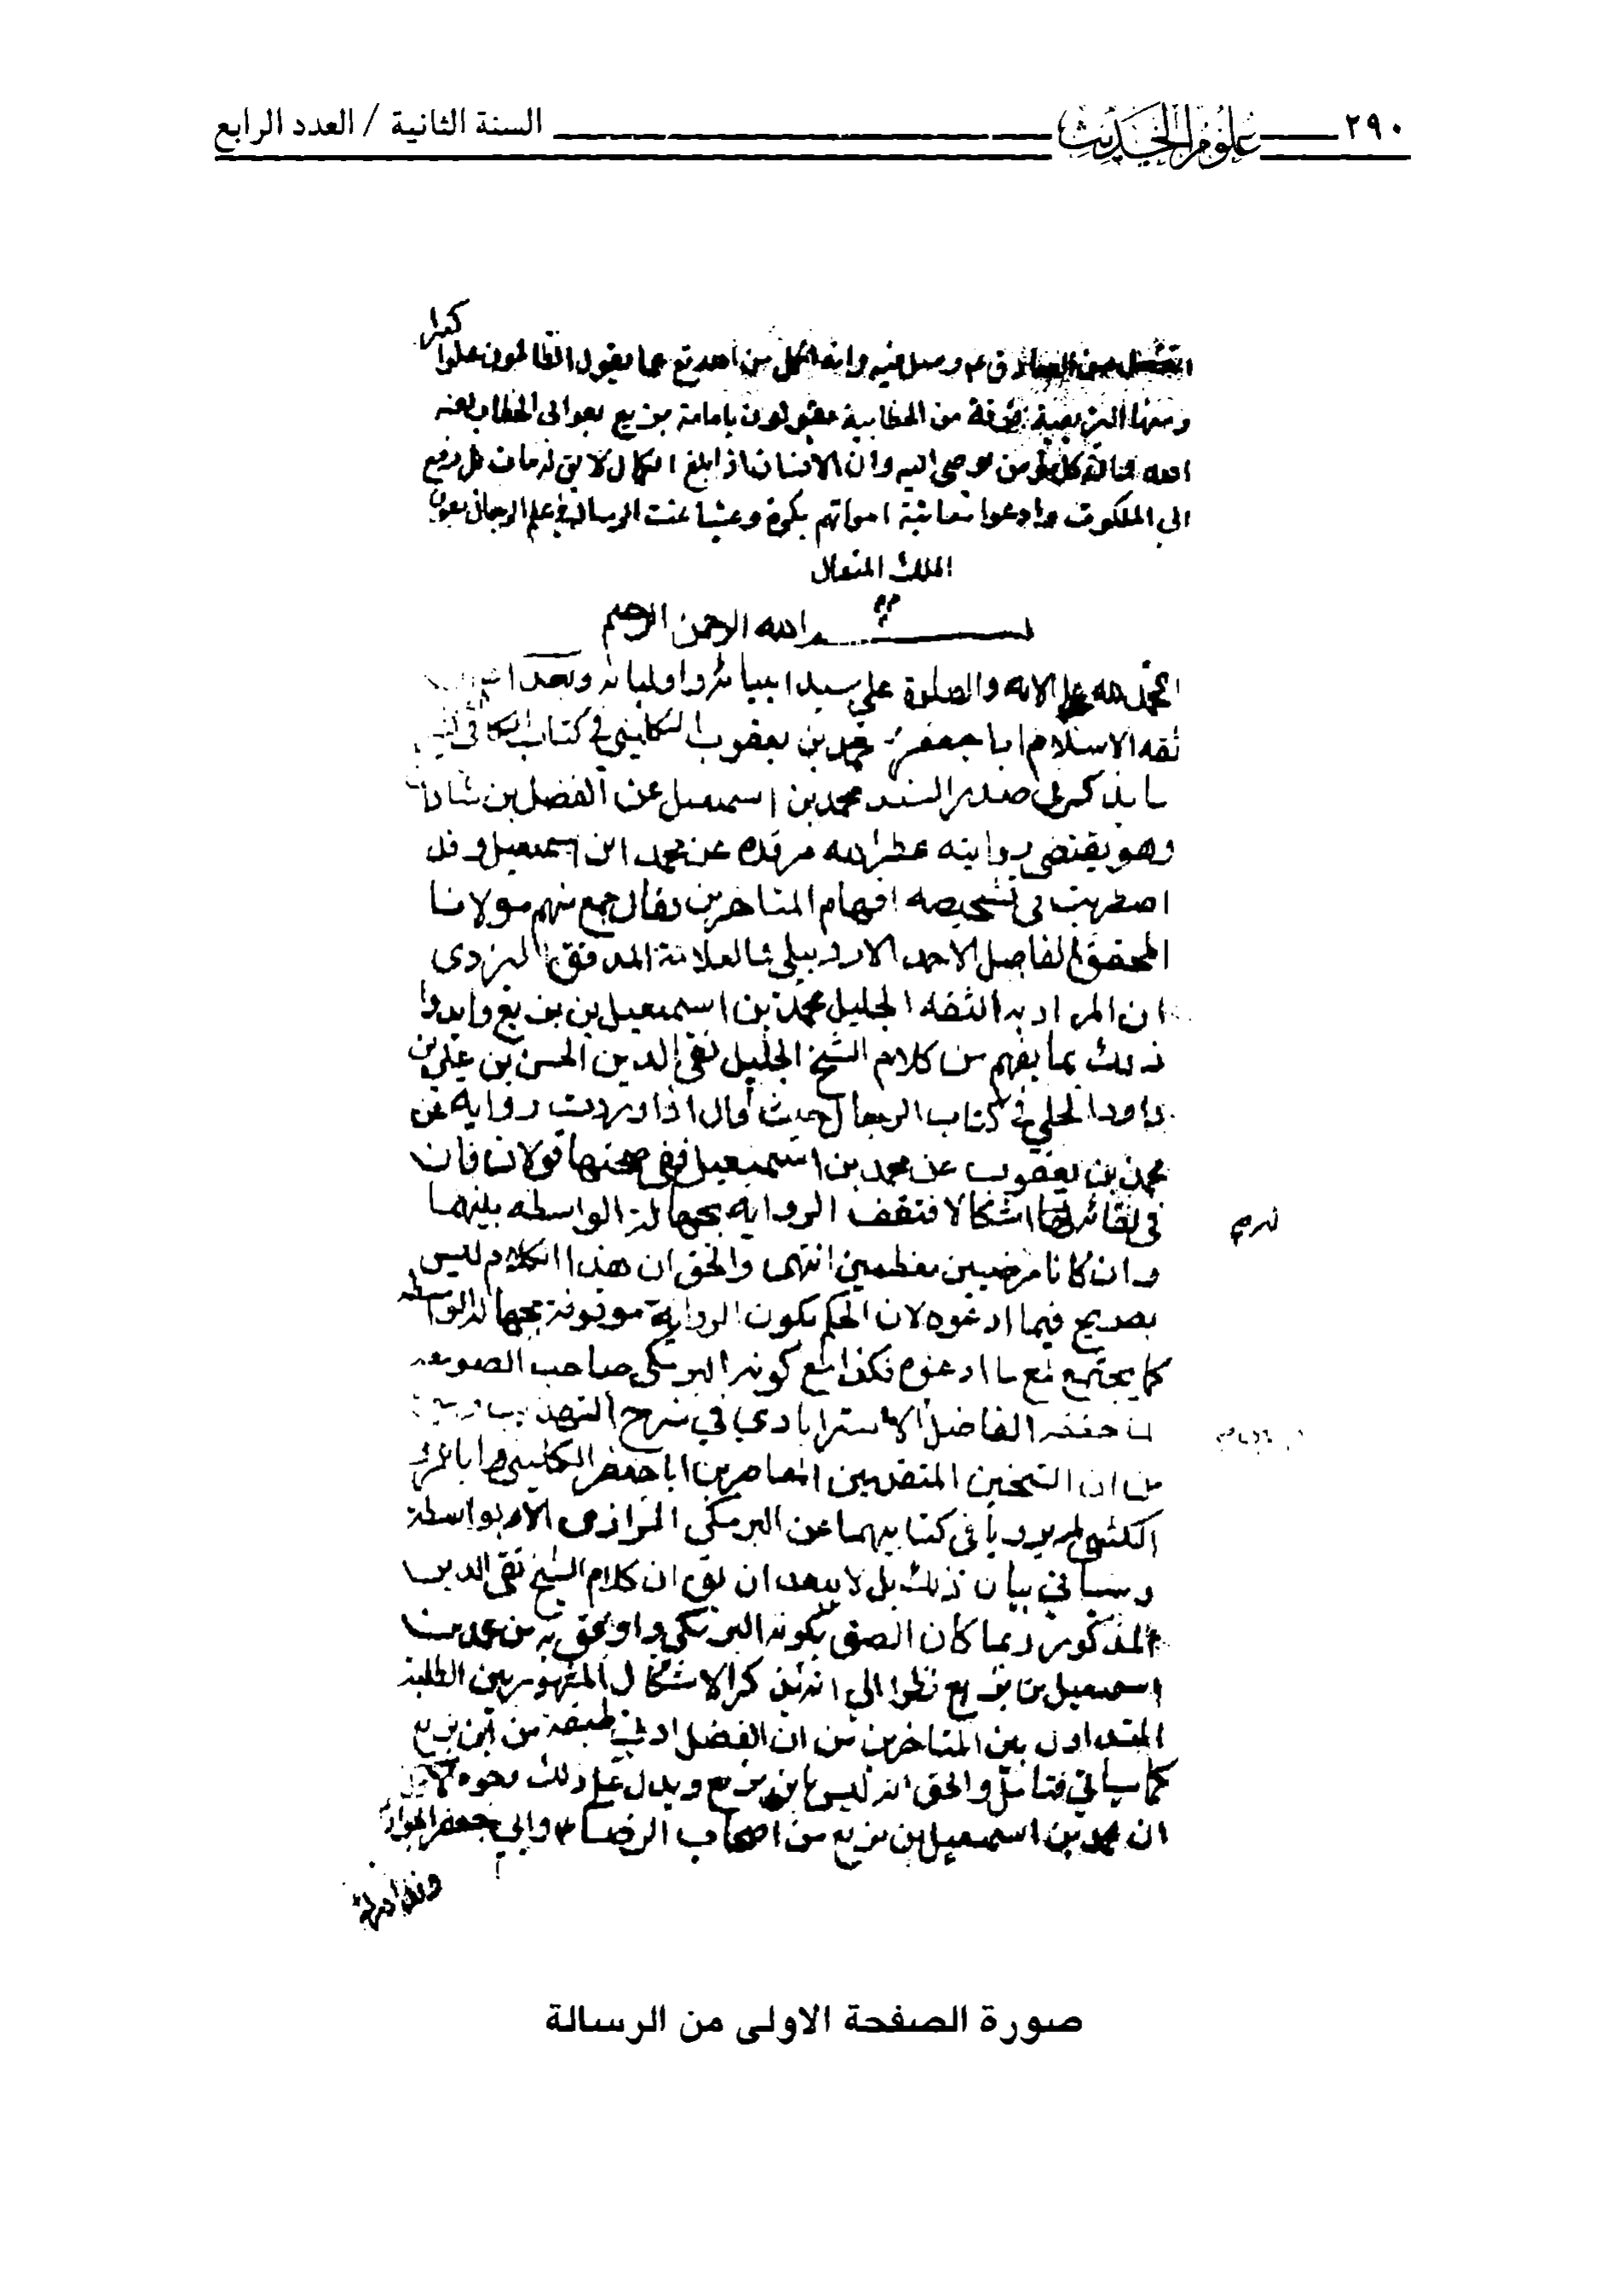 ٢٩٠ علوم الحديث السنة الثانية / العدد الرابع
كبيرا
من الصادق ع م و وانه اكمل من احد تع عما يقول الظالمون علوا
ومنها البزيعية فرقة من الخطابية يقولون بامامة بزيع بعد ابى الخطاب لعنه
الله كل مؤمن يوحى اليه وان الانسان اذا بلغ الكمال لا يق له مات بل رفع
الى الملكوت وادعوا معاينة امواتهم بكرة وعشيا تمت الرسالة في علم الرجال بعون
الملك المتعال
بسم الله الرحمن الرحيم
الحمد لله على الائه والصلوة على سيد انبيائه واوليائه وبعد
ثقه الاسلام ابا جعفر محمد بن يعقوب الكليني في كتاب الكافي
ما يذكر في صدر السند محمد بن اسمعيل عن الفضل بن شاذان
وهو يقتضى روايته عطر الله مرقده عن محمد ابن اسمعيل وقد
اضطربت في تشخيصه افهام المتاخرين فقال جمع منهم مولانا
المحقق الفاضل الاحمد الاردبيلي شالعلامة المدقق اليزدى
ان المراد به الثقه الجليل محمد بن اسمعيل بن بزيع وايدوا
ذلك بما يفهم من كلام الشيخ الجليل تقي الدين الحسن بن علي بن
داود الحلي في كتاب الرجال حيث قال اذا وردت رواية عن
محمد بن يعقوب عن محمد بن اسمعيل ففي صحتها قولان فان
في لقائه لها اشكالا فتقف الرواية بجهالة الواسطه بينهما
وان كانا مرضيين معظمين انتهى والحق ان هذا الكلام ليس
بصريح فيما ادعوه لان الحكم بكون الرواية موقوفة بجهالة الواسطه
كما يجتمع مع ما ادعوه فكذا مع كونه البرمكي صاحب الصومعه
لما حققه الفاضل الاسترابادي في شرح التهذيب
من ان الشيخين المتقدمين المعاصرين ابا جعفر الكليني وابا عمرو
الكشي لم يرويا في كتابيهما عن البرمكي الرازى الا بواسطة
وسياتي بيان ذلك بل لا يبعد ان يق ان كلام الشيخ تقي الدين
المذكور ربما كان الصق بكونه البرمكي واوفق به من محمد بن
اسمعيل بن بزيع نظرا الى انه ذكر الاشكال المشهور بين الطلبة
المتداول بين المتاخرين من ان الفضل ادنى طبقة من ابن بزيع
كما سياتي فتامل والحق انه ليس بابن بزيع ويدل على ذلك وجوه
ان محمد بن اسمعيل بن بزيع من اصحاب الرضا ع وابي جعفر الجواد
صورة الصفحة الاولى من الرسالة